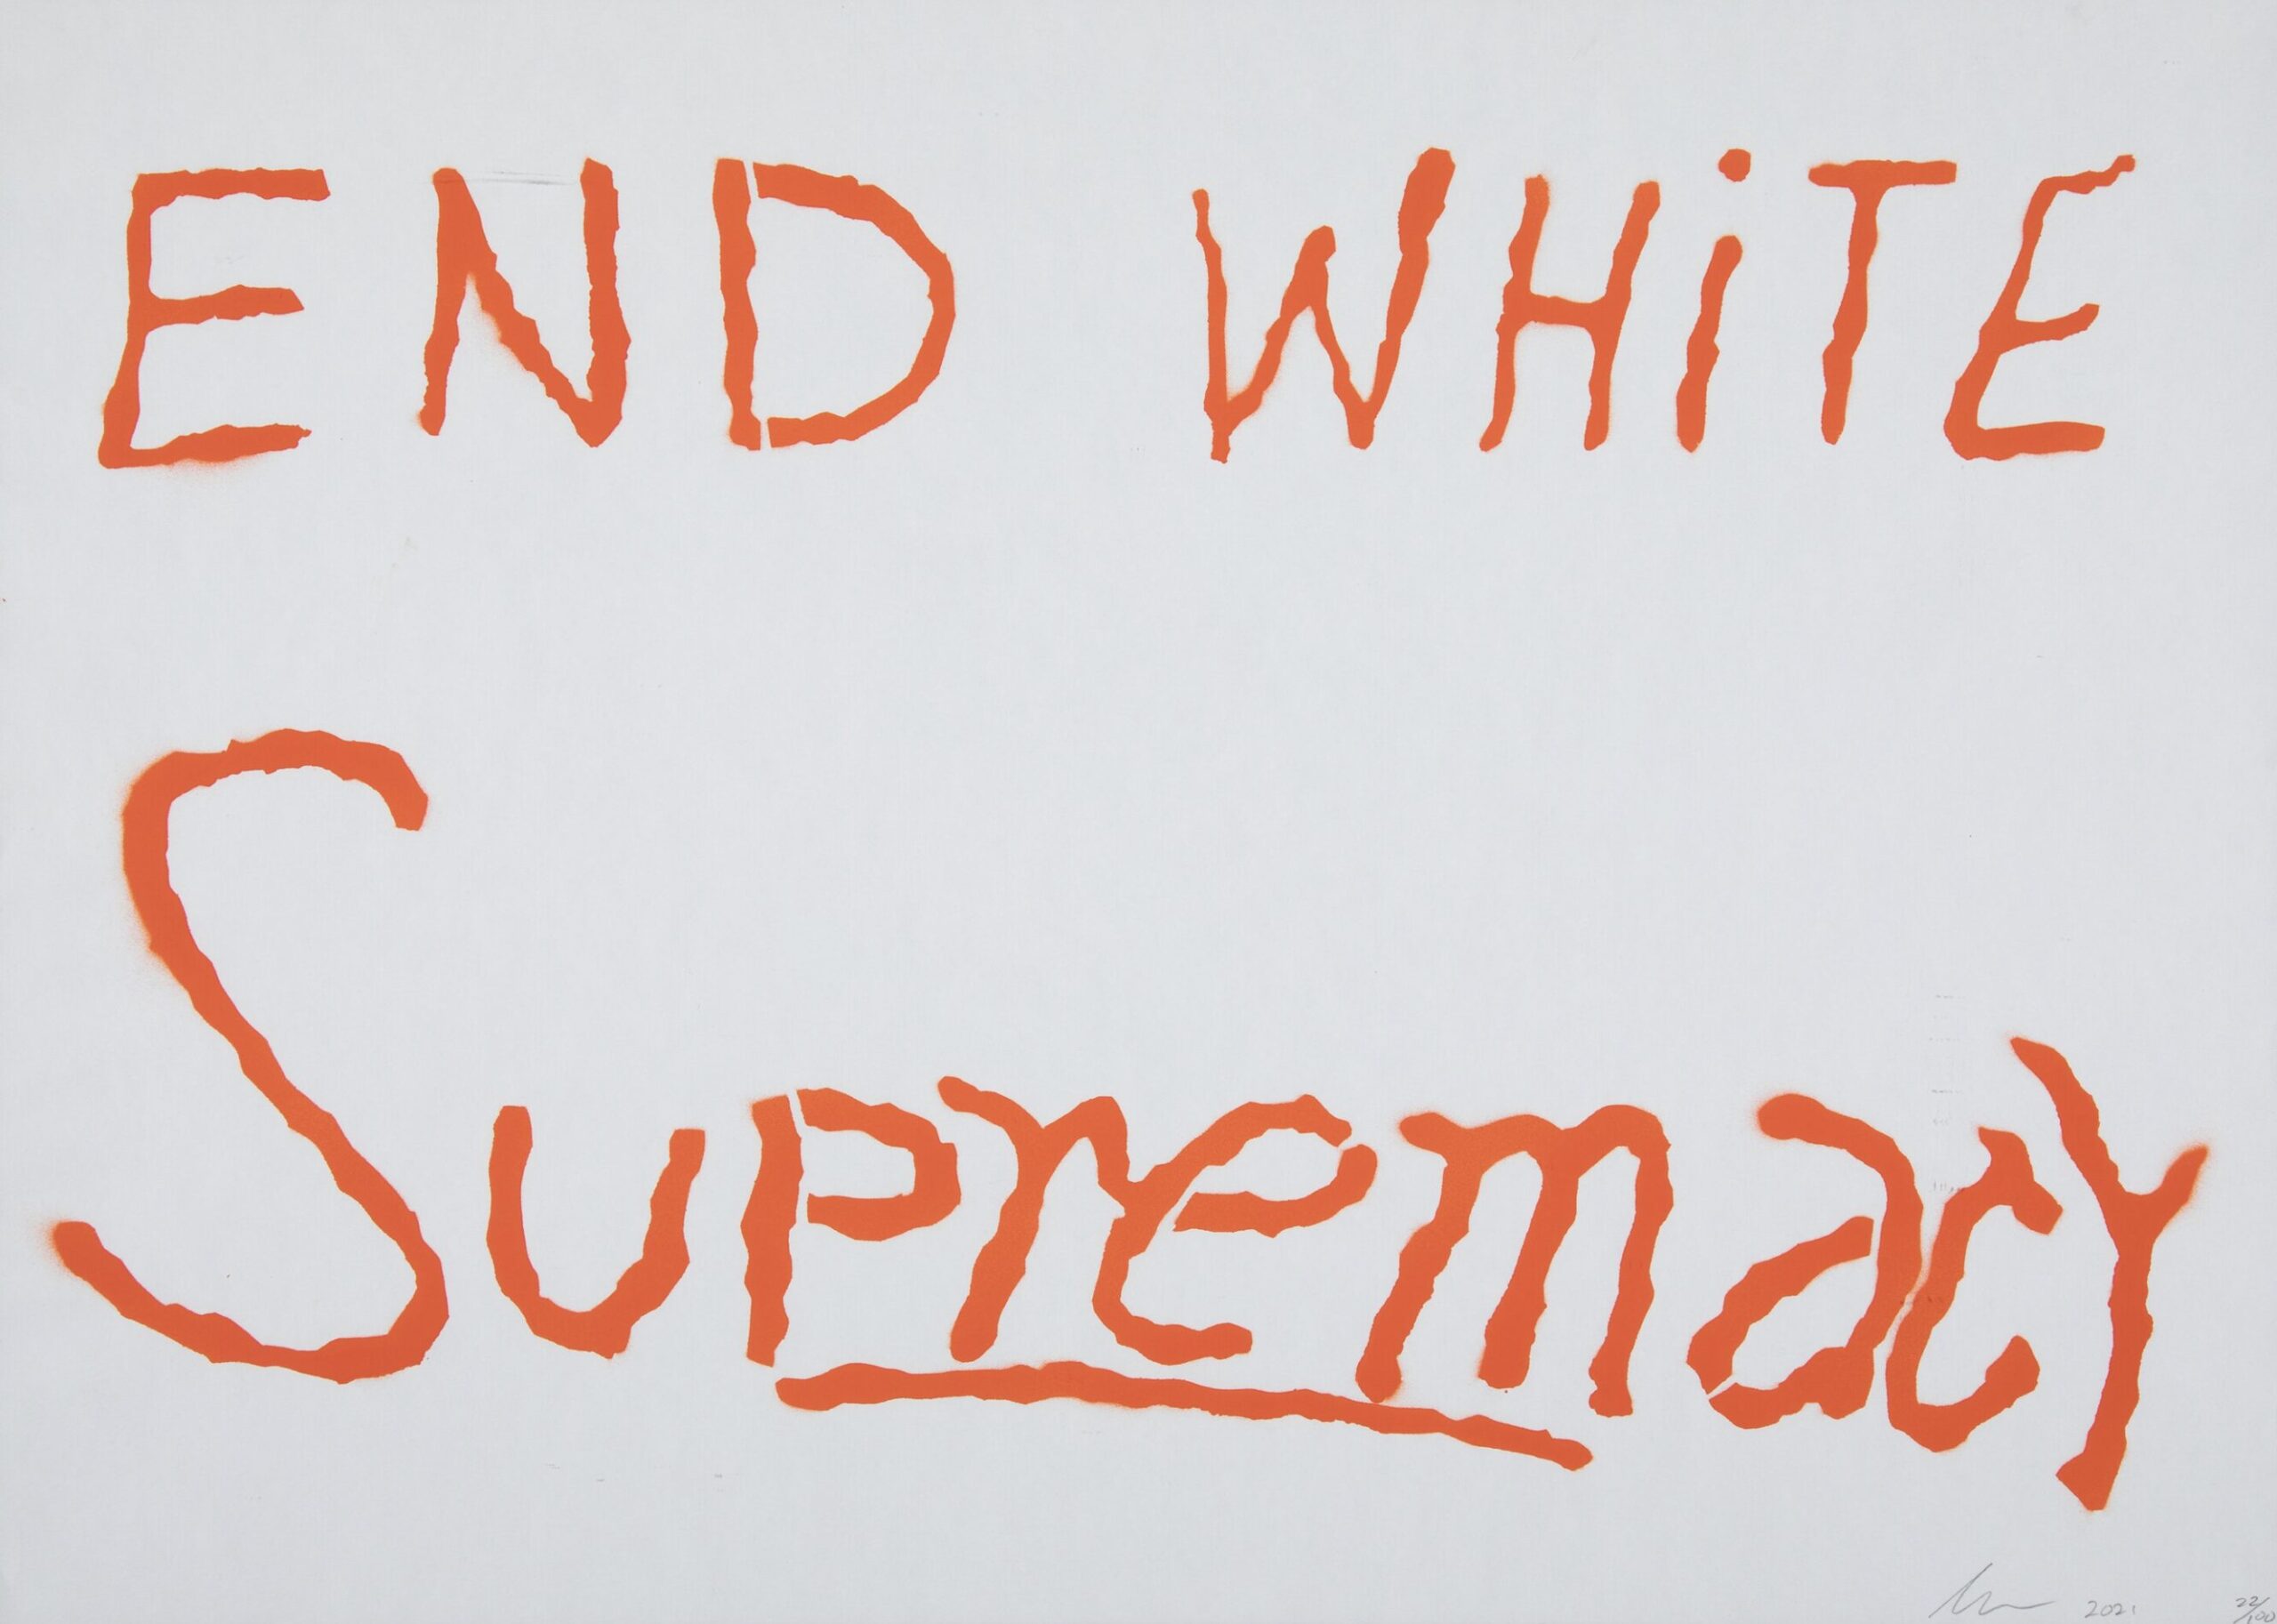 END WHiTE
Supremacy
2021 22/100